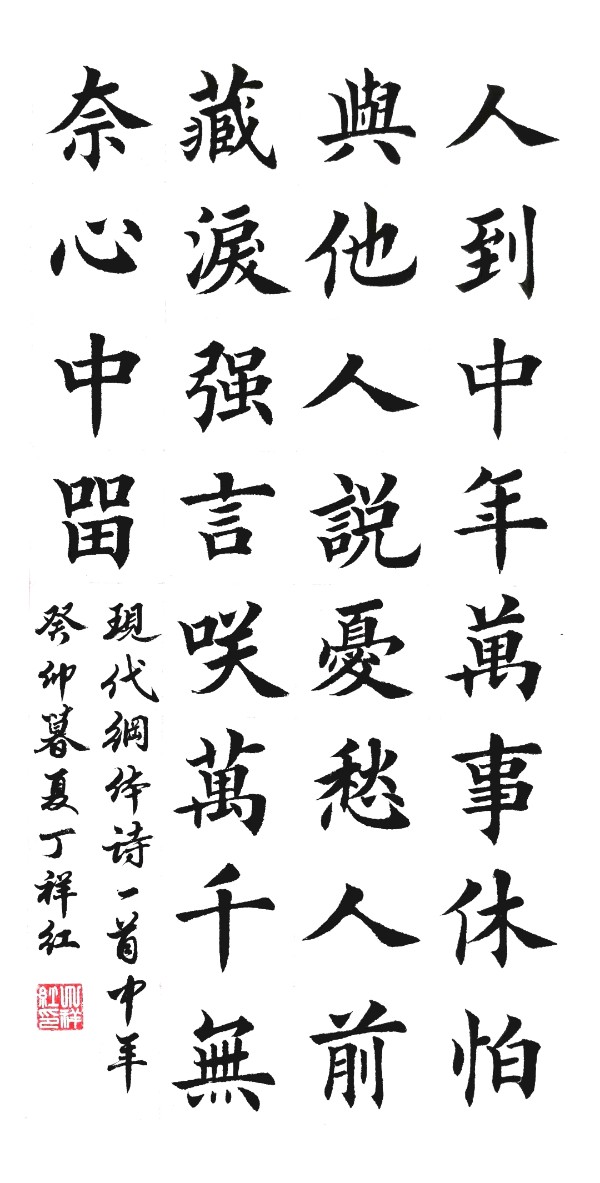 人到中年萬事休怕
與他人説憂愁人前
藏淚强言咲萬千無
奈心中畱
現代網体诗一首中年
癸卯暮夏丁祥红